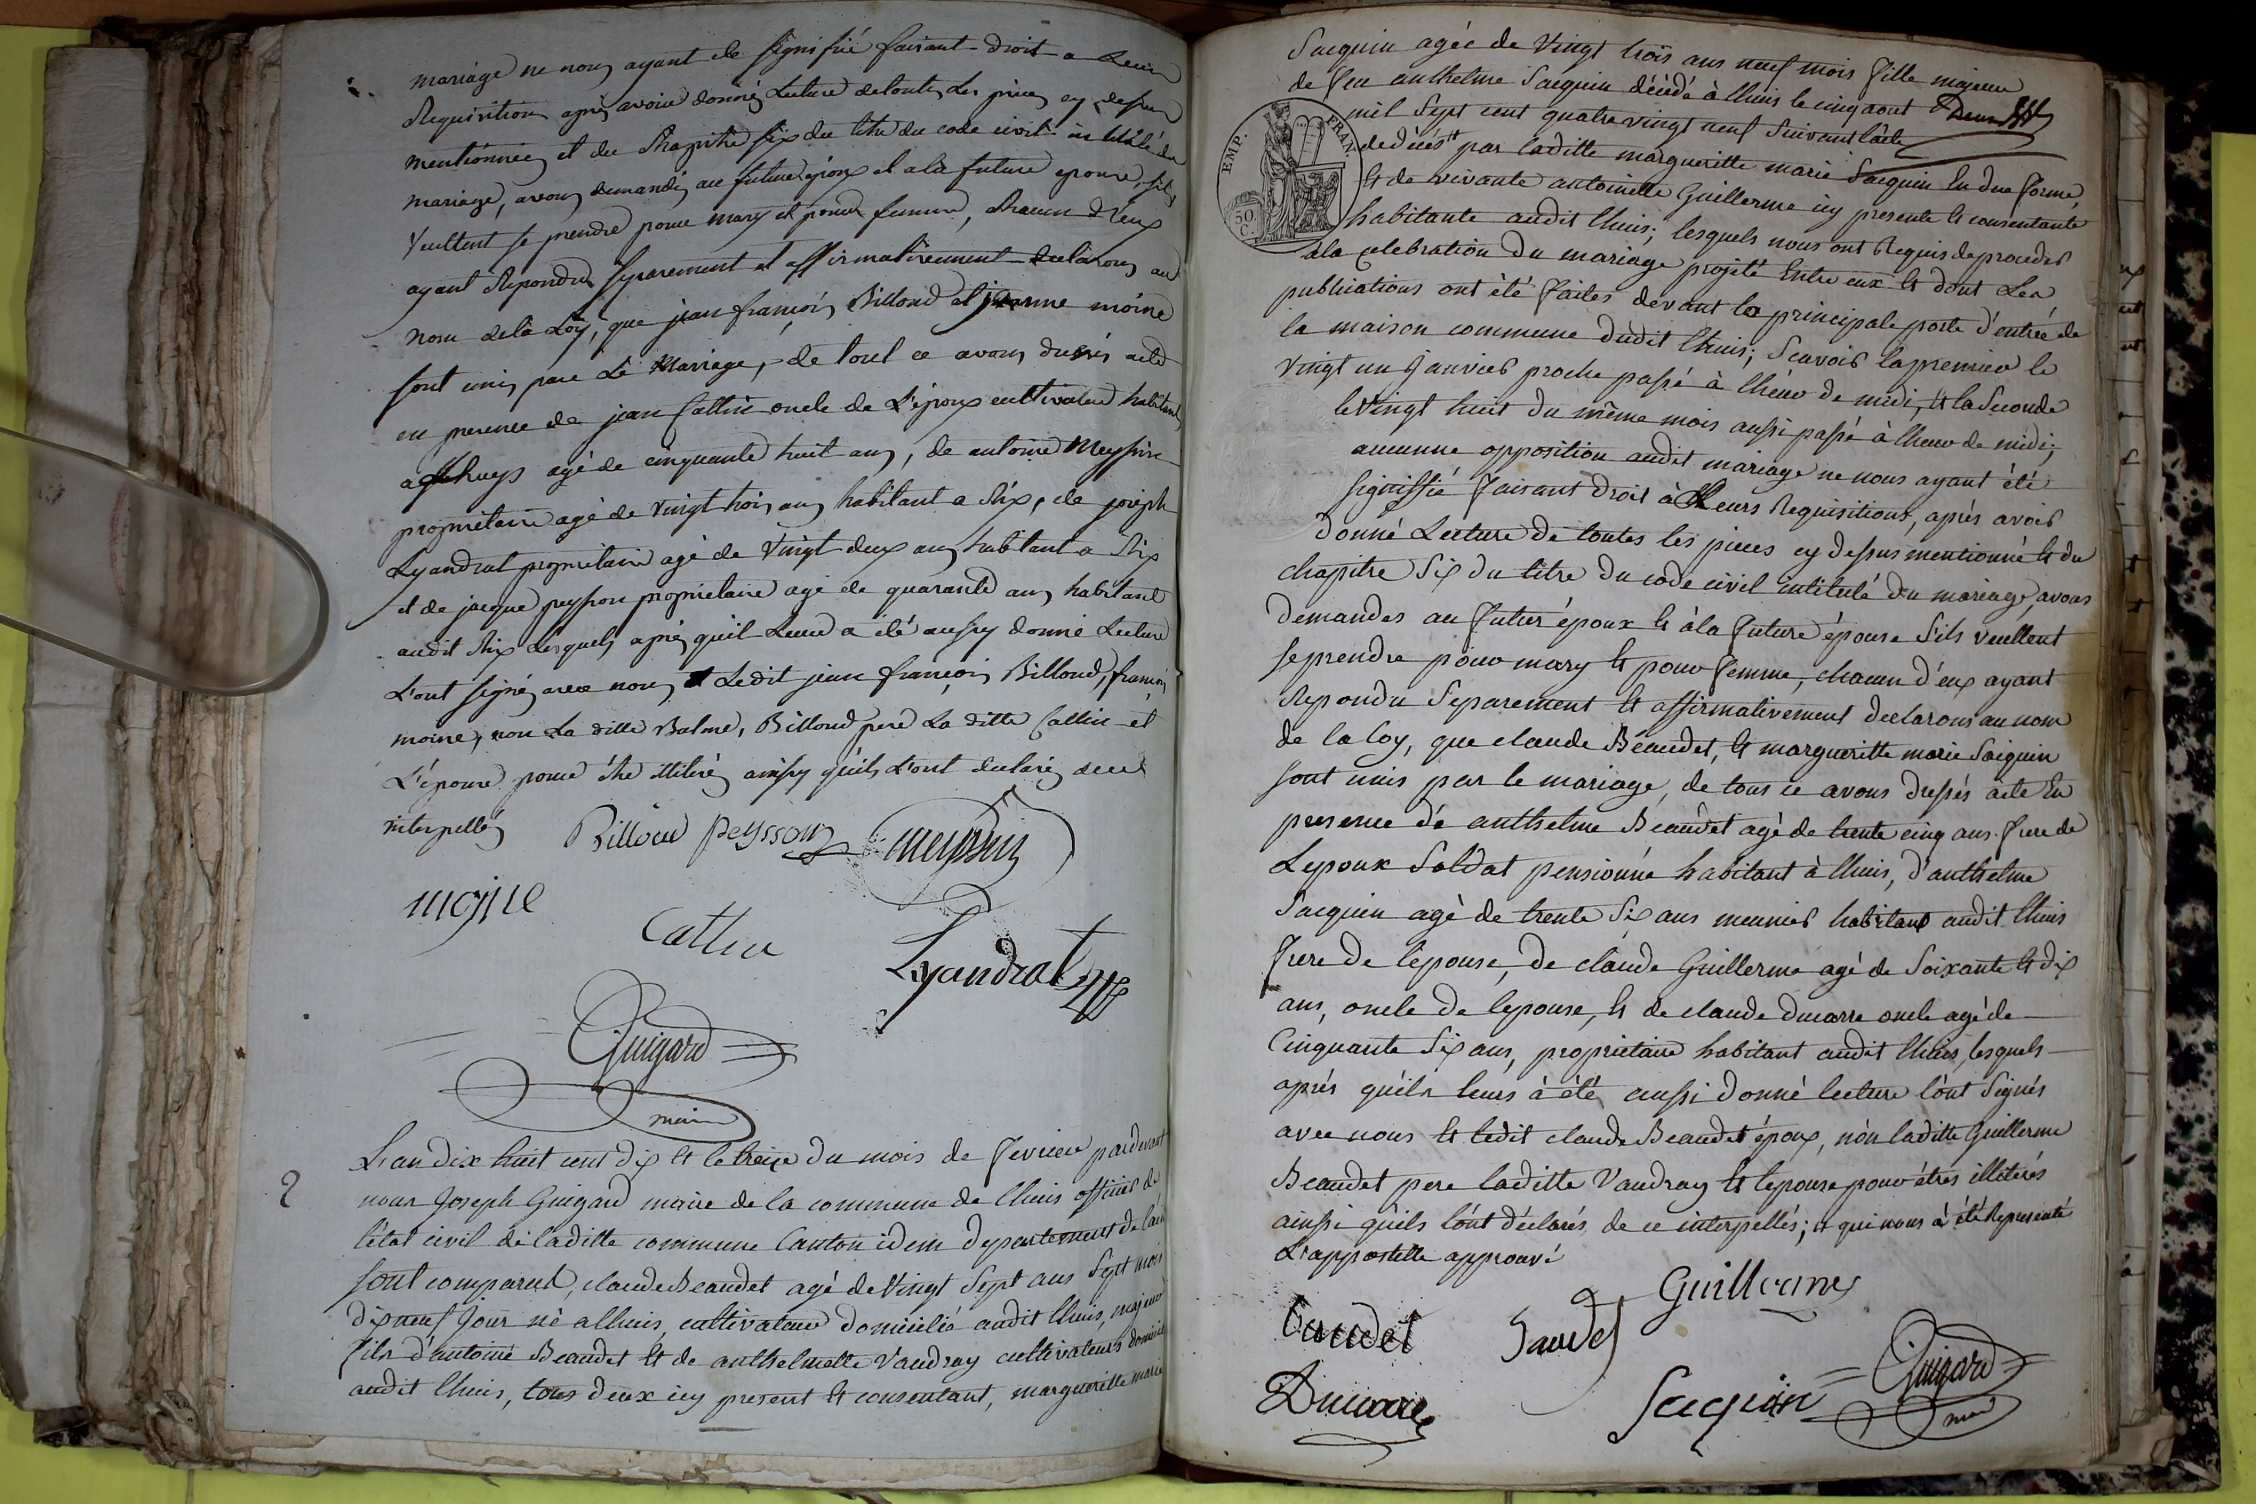 mariage ne nous ayant été signifié faisant droit a Leur
Requisition après avoir donné Lecture de toutes Les pieces cy dessus
mentionnées et du Chapitre six du titre du code civil intitulé du
mariage, avons demandé au futur époux et a la future epouse, s'ils
veullent se prendre pour mary et pour femme, chacun d'eux
ayant Repondu separement et affirmativement declarons au
nom de la Loy, que jean françois Billoud et jeanne moine
sont unis par Le Mariage, de tout ce avons dressés acte
en presence de jean Cattin oncle de L'époux cultivateur habitant
a agé de cinquante huit ans, de antoine Meyssin
proprietaire agé de vingt trois ans habitant a Rix, de joseph
Lyandrat proprietaire agé de vingt deux ans habitant a Rix
et de jacque peysson proprietaire agé de quarante ans habitant
audit Rix Lesquels après quil Leur a été aussy donné Lecture
L'ont signé avec nous et Ledit jean françois Billoud, françois
moine, non La ditte Balme, Billoud pere La ditte Cattin et
L'épouse pour être illiterés ainsy qu'ils L'ont declarés de ce
interpellés
Billoud peysson meyssin
moine
Cattin
Lyandrat
Guigard
maire
2
L'an dix huit cent dix et le treize du mois de fevrier pardevant
nous Joseph Guigard maire de la commune de lhuis officier de
l'état civil de laditte commune Canton idem Departement de l'ain
sont comparut, claude Beaudet agé de vingt sept ans sept mois
dix neuf jour né a lhuis, cultivateur domicilié audit lhuis, majeur
fils d'antoine Beaudet et de anthelmette Vaudray cultivateurs domicilié
audit lhuis, tous deux icy present et consentant, margueritte marie
Sacquin agée de vingt trois ans neuf mois fille majeure
de feu anthelme Sacquin décédé à lhuis le cinq aout
mil sept cent quatre vingt neuf suivant l'acte
de décés par laditte margueritte marie Sacquin en due forme,
et de vivante antoinette Guillerme icy presente et consentante
EMP. FRAN.
50 C.
habitante audit lhuis; lesquels nous ont Requis de proceder
a la celebration du mariage projeté entre eux et dont les
publications ont été faites devant la principale porte d'entrée de
la maison commune dudit lhuis; scavoir la premiere le
vingt un janvier proche passé à lheure de midi, et la seconde
le vingt huit du même mois aussi passé à lheure de midi;
aucunne opposition audit mariage ne nous ayant été
signiffié faisant droit à leurs Requisitions, aprés avoir
donné Lecture de toutes les pieces cy dessus mentionné et du
chapitre six du titre du code civil intitulé du mariage, avons
demandes au futur époux et à la future épouse s'ils veullent
se prendre pour mary et pour femme, chacun d'eux ayant
Repondu separement et affirmativement declarons au nom
de la loy, que claude Beaudet, et margueritte marie Saiquin
sont unis par le mariage, de tous ce avons dressés acte en
presence de anthelme Beaudet agé de trente cinq ans frere de
Lepoux soldat pensionné habitant à lhuis, d'anthelme
Sacquin agé de trente six ans meunier habitant audit lhuis
frere de lépouse, de claude Guillerme agé de soixante et dix
ans, oncle de lepouse, et de claude Ducarre oncle agé de
Cinquante six ans, proprietaire habitant audit lhuis, lesquels
aprés quils leurs à été aussi donné lecture l'ont signés
avec nous et ledit claude Beaudet époux, non laditte Guillerme
Beaudet pere laditte Vaudray et lepouse pour étres illiterés
ainssi quils l'ont déclarés de ce interpellés; qui nous à été Representé
L'appostille approuvé
Guillerme
Baudet Baudet
Ducarre Sacquin Guigard
maire